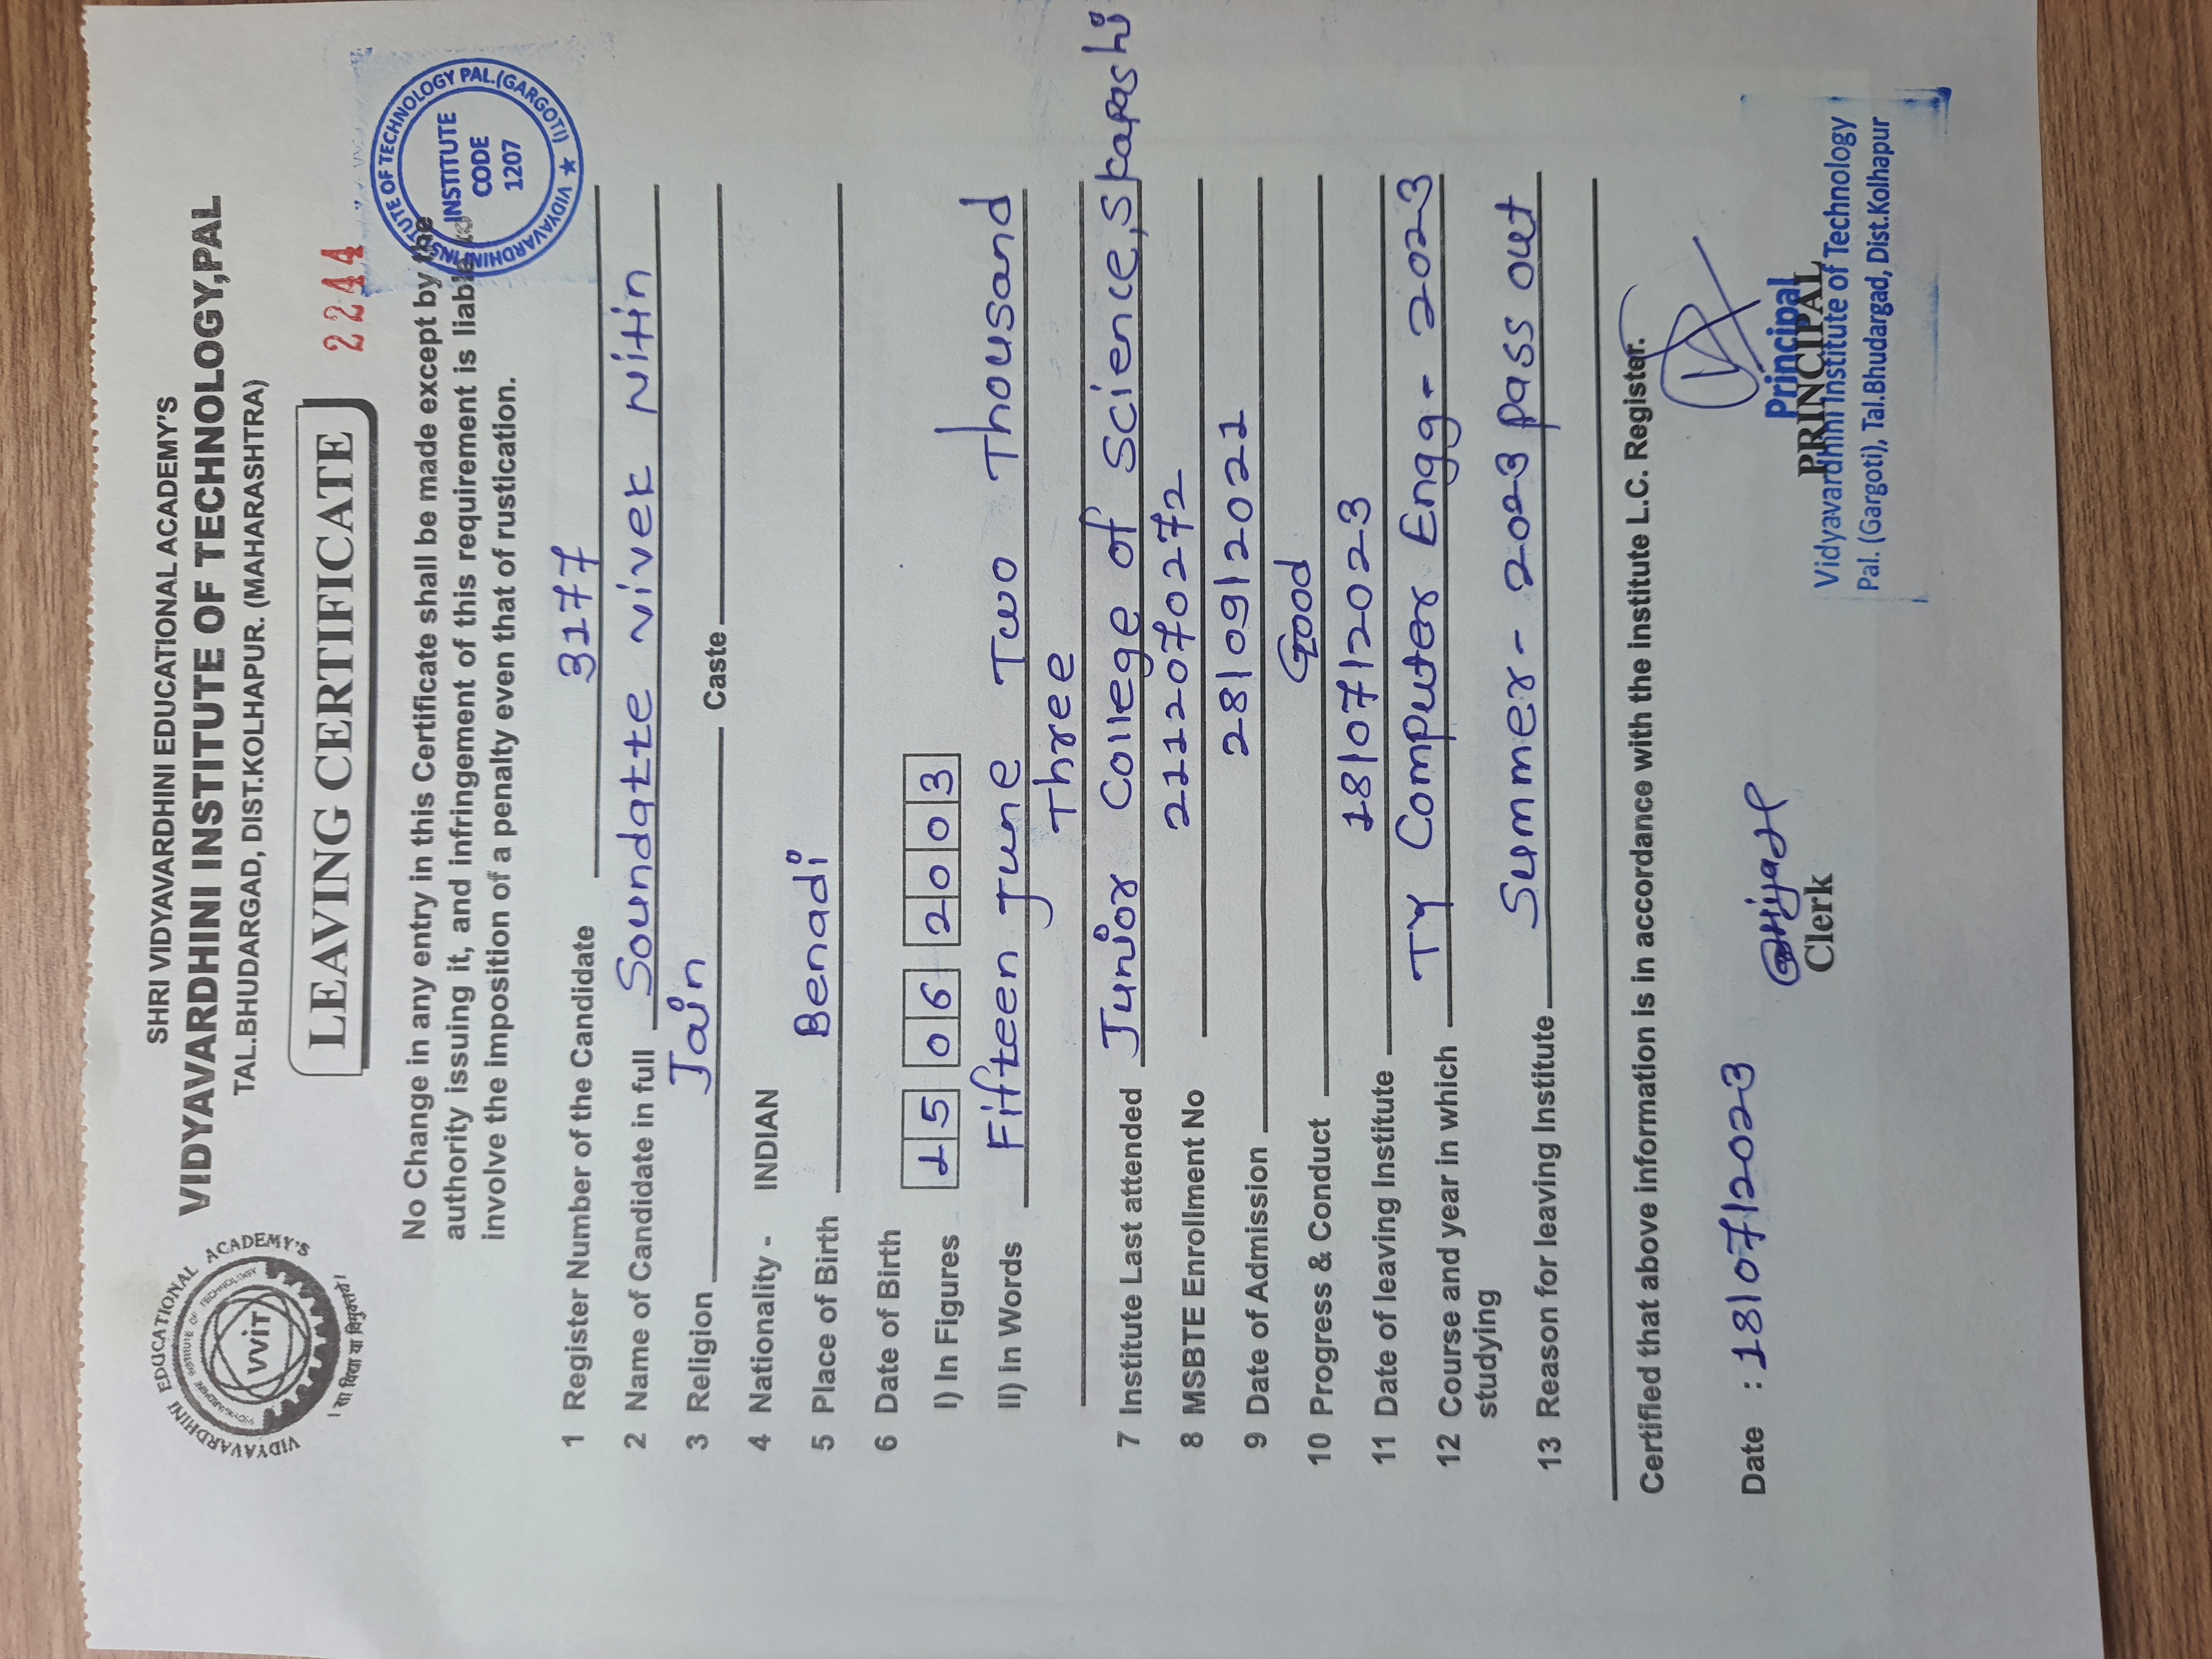 VIDYAVARDHINI EDUCATIONAL ACADEMY'S
VIDYAVARDHINI INSTITUTE OF TECHNOLOGY
VVIT
। सा विद्या या विमुक्तये।
SHRI VIDYAVARDHINI EDUCATIONAL ACADEMY'S
VIDYAVARDHINI INSTITUTE OF TECHNOLOGY,PAL
TAL.BHUDARGAD, DIST.KOLHAPUR. (MAHARASHTRA)
LEAVING CERTIFICATE
2244
VIDYAVARDHINI INSTITUTE OF TECHNOLOGY PAL.(GARGOTI) ★
INSTITUTE
CODE
1207
No Change in any entry in this Certificate shall be made except by the
authority issuing it, and infringement of this requirement is liable to
involve the imposition of a penalty even that of rustication.
1 Register Number of the Candidate 3177
2 Name of Candidate in full Soundatte vivek Nitin
3 Religion Jain Caste
4 Nationality - INDIAN
5 Place of Birth Benadi
6 Date of Birth
I) In Figures 15 06 2003
II) In Words Fifteen June Two Thousand
Three
7 Institute Last attended Junior College of Science,s kapashi
8 MSBTE Enrollment No 2112070272
9 Date of Admission 28/09/2021
10 Progress & Conduct Good
11 Date of leaving Institute 18/07/2023
12 Course and year in which TY Computer Engg- 2023
studying
13 Reason for leaving Institute Summer- 2023 pass out
Certified that above information is in accordance with the institute L.C. Register.
Date : 18/07/2023
Clerk
Principal
PRINCIPAL
Vidyavardhini Institute of Technology
Pal. (Gargoti), Tal.Bhudargad, Dist.Kolhapur